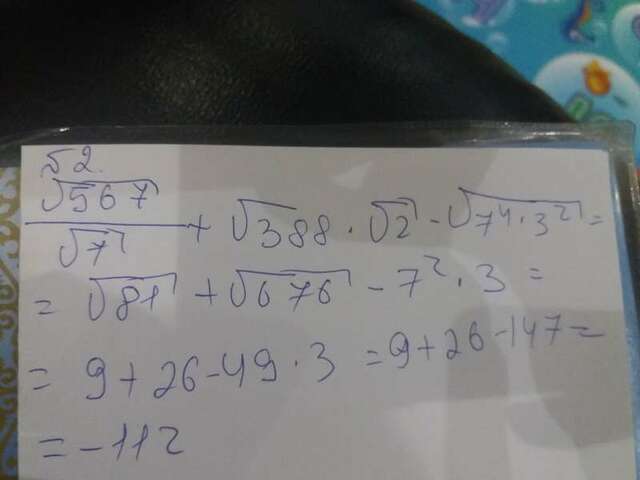 √2.
√567/√7 + √388 · √2 - √7⁴·3² =
= √81 + √676 - 7² · 3 =
= 9 + 26 - 49 · 3 = 9 + 26 - 147 =
= -112